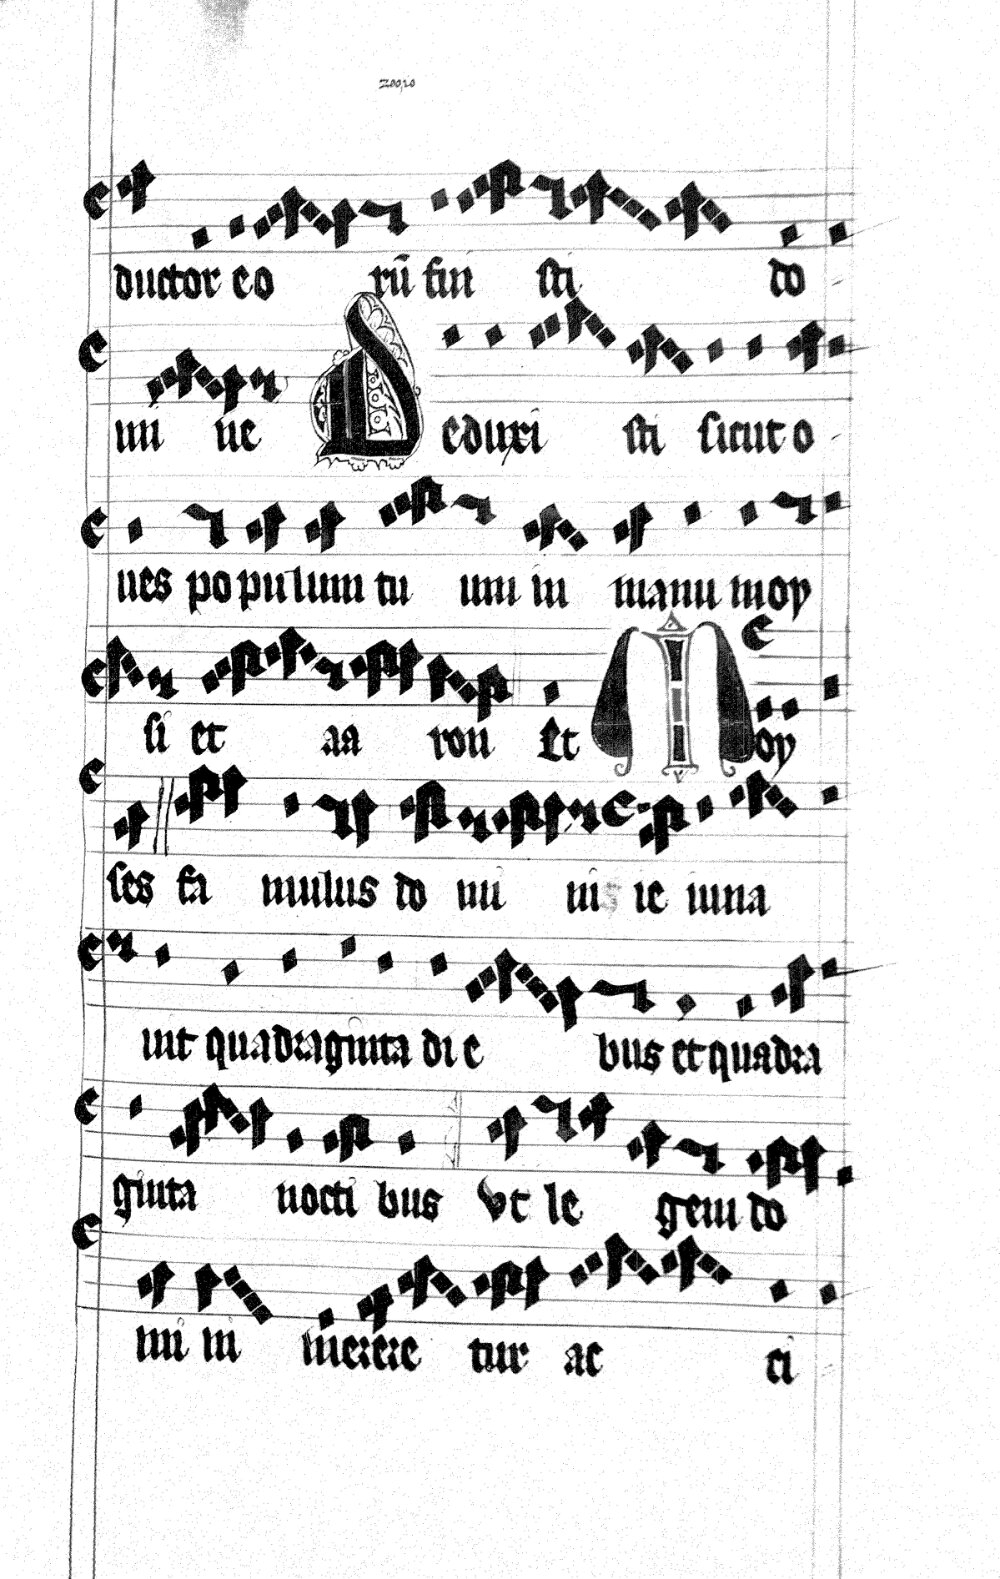 ductor eo rū fui sti do
mi ne Deduxi sti sicut o
ues po pu lum tu um in manu moy
si et aa ron Et Moy
ses fa mulus do mi nis ie iuna
uit quadraginta di e bus et quadra
ginta nocti bus Vt le gem do
mi ni merere tur ac ci